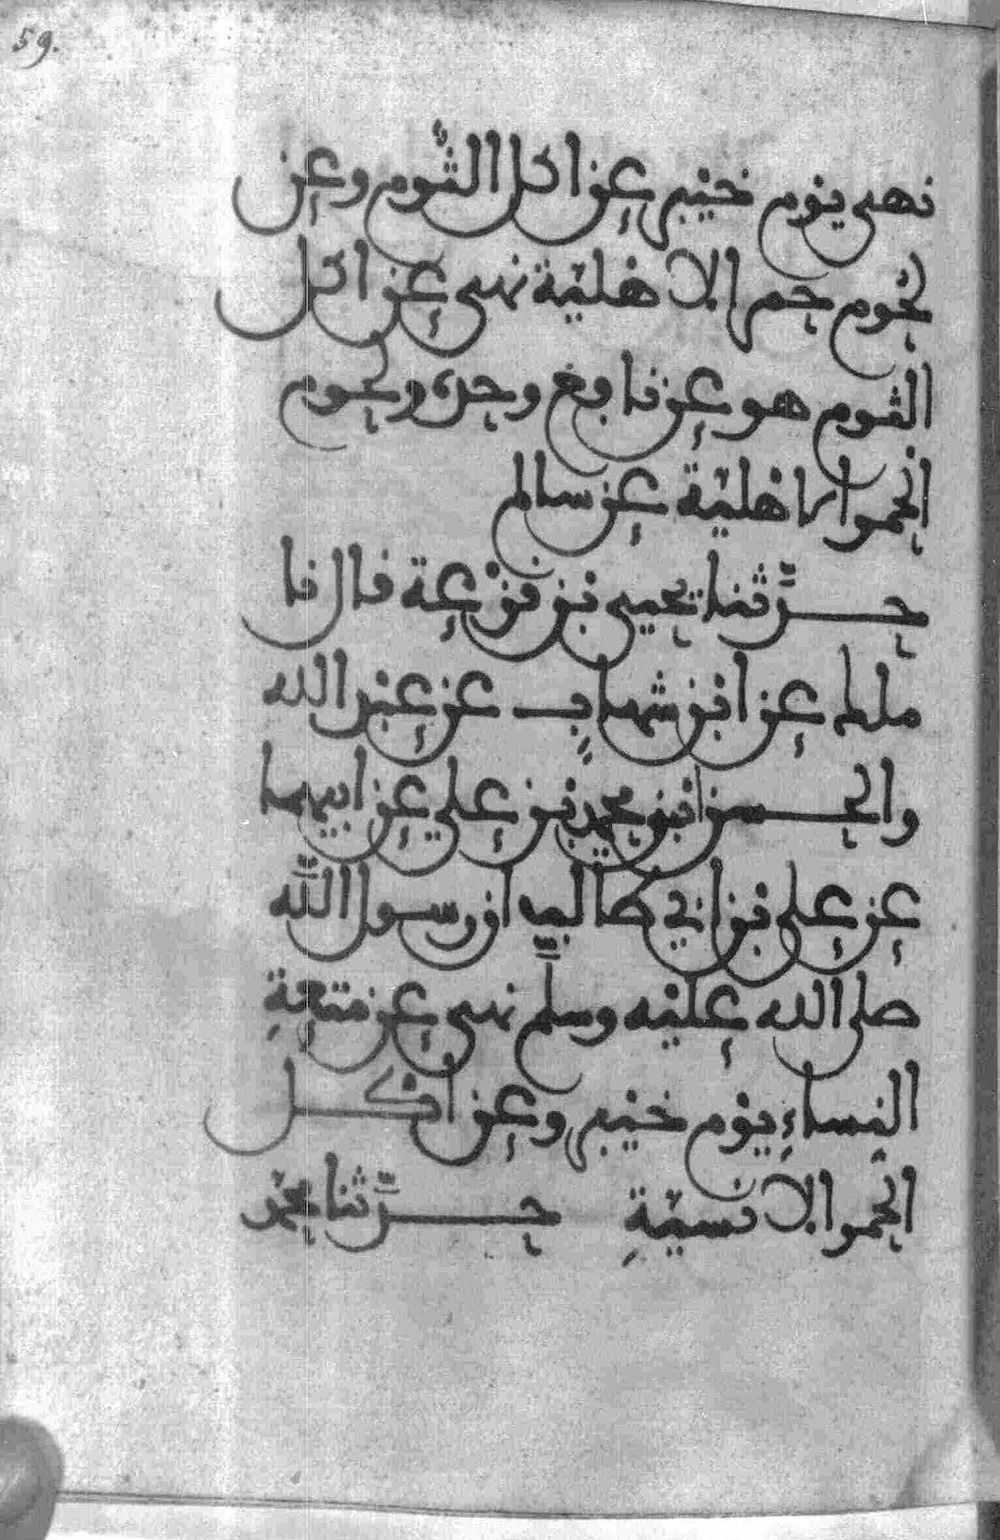 59.
نهى يوم خيبر عن اكل الثوم وعن
لحوم حمر الاهلية نهى عن اكل
الثوم هو عن نافع وحده ولحوم
الحمر الاهلية عن سالم
حدثنا يحيى بن قزعة قال نا
ملك عن ابن شهاب عن عبد الله
والحسن ابني محمد بن علي عن ابيهما
عن علي بن ابي طالب ان رسول الله
صلى الله عليه وسلم نهى عن متعة
النساء يوم خيبر وعن اكل
الحمر الانسية حدثنا محمد